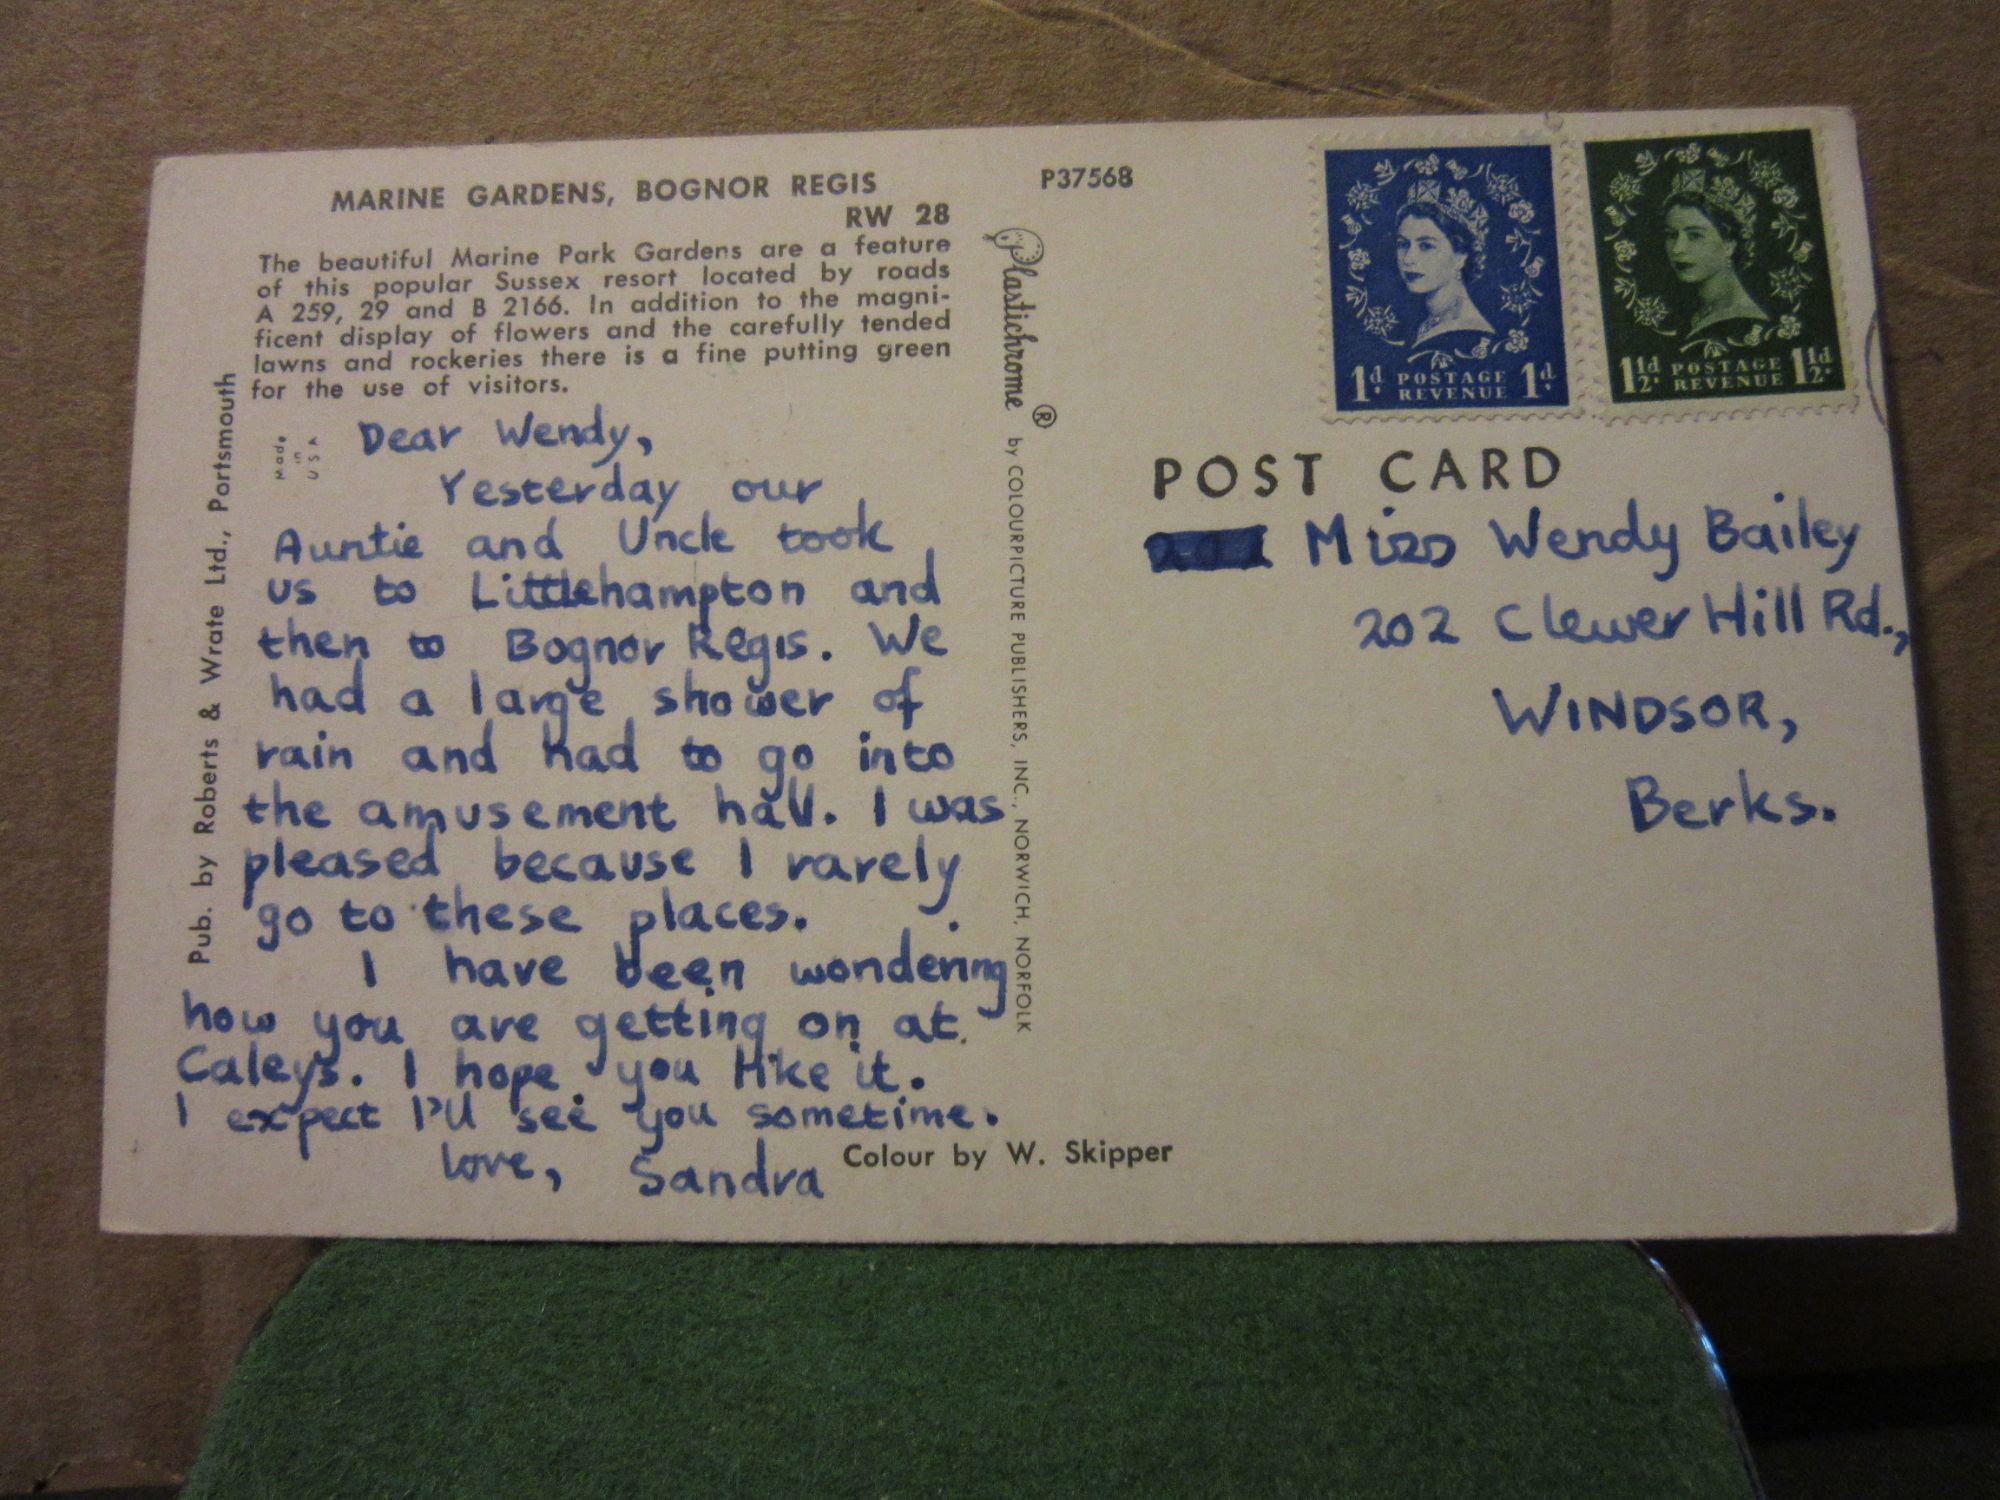 MARINE GARDENS, BOGNOR REGIS
RW 28
The beautiful Marine Park Gardens are a feature
of this popular Sussex resort located by roads
A 259, 29 and B 2166. In addition to the magni-
ficent display of flowers and the carefully tended
lawns and rockeries there is a fine putting green
for the use of visitors.
Made in USA
Dear Wendy,
Yesterday our
Auntie and Uncle took
us to Littlehampton and
then to Bognor Regis. We
had a large shower of
rain and had to go into
the amusement hall. I was
pleased because I rarely
go to these places.
I have been wondering
how you are getting on at
Caleys. I hope you like it.
I expect I'll see you sometime.
love, Sandra
Pub. by Roberts & Wrate Ltd., Portsmouth
Plastichrome ® by COLOURPICTURE PUBLISHERS, INC., NORWICH, NORFOLK
Colour by W. Skipper
P37568
1d. POSTAGE REVENUE 1d.
1½d. POSTAGE REVENUE 1½d.
POST CARD
Miss Wendy Bailey
202 Clewer Hill Rd.,
WINDSOR,
Berks.